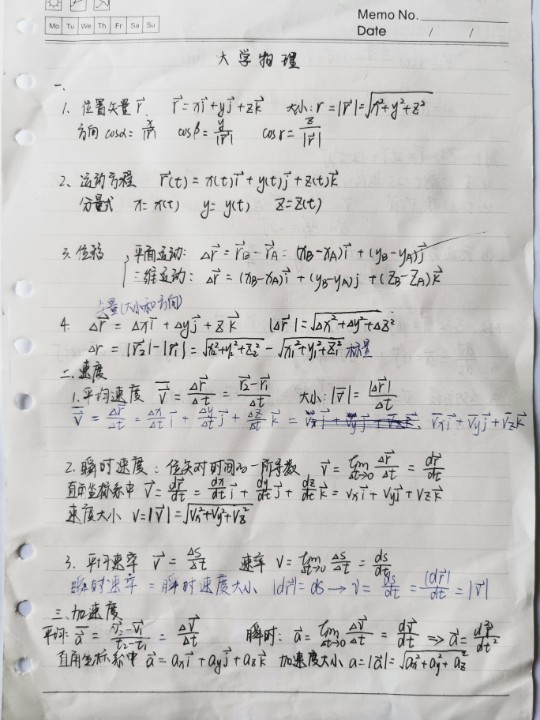 Memo No.
Mo Tu We Th Fr Sa Su
Date / /
大学物理
一.
1. 位置矢量 r⃗. r⃗ = xi⃗ + yj⃗ + zk⃗ 大小: r = |r⃗| = √(x²+y²+z²)
方向 cosα = x/|r⃗| cosβ = y/|r⃗| cosr = z/|r⃗|
2. 运动方程 r⃗(t) = x(t)i⃗ + y(t)j⃗ + z(t)k⃗
分量式 x = x(t) y = y(t) z = z(t)
3. 位移 平面运动: Δr⃗ = r⃗B - r⃗A = (xB-xA)i⃗ + (yB-yA)j⃗
三维运动: Δr⃗ = (xB-xA)i⃗ + (yB-yA)j + (zB-zA)k⃗
矢量(大小和方向)
4. Δr⃗ = Δxi⃗ + Δyj⃗ + zk⃗ |Δr⃗| = √(Δx²+Δy²+Δz²)
Δr = |r⃗2| - |r⃗1| = √(x2²+y2²+z2²) - √(x1²+y1²+z1²) 标量
二. 速度
1. 平均速度 v̄⃗ = Δr⃗/Δt = (r⃗2-r⃗1)/Δt 大小: |v̄⃗| = |Δr⃗|/Δt
v̄⃗ = Δr⃗/Δt = Δx/Δt i⃗ + Δy/Δt j⃗ + Δz/Δt k⃗ = v̄xi⃗ + v̄yj⃗ + v̄zk⃗
2. 瞬时速度: 位矢对时间的一阶导数 v⃗ = lim Δt→0 Δr⃗/Δt = dr⃗/dt
直角坐标系中 v⃗ = dr⃗/dt = dx/dt i⃗ + dy/dt j⃗ + dz/dt k⃗ = vxi⃗ + vyj⃗ + vzk⃗
速度大小 v = |v⃗| = √(vx²+vy²+vz²)
3. 平均速率 v̄ = Δs/Δt 速率 v = lim Δt→0 Δs/Δt = ds/dt
瞬时速率 = 瞬时速度大小 |dr⃗| = ds → v = ds/dt = |dr⃗|/dt = |v⃗|
三. 加速度
平均: ā⃗ = (v⃗2-v⃗1)/(t2-t1) = Δv⃗/Δt 瞬时: a⃗ = lim Δt→0 Δv⃗/Δt = dv⃗/dt ⇒ a⃗ = d²r⃗/dt²
直角坐标系中 a⃗ = axi⃗ + ayj⃗ + azk⃗ 加速度大小 a = |a⃗| = √(ax²+ay²+az²)